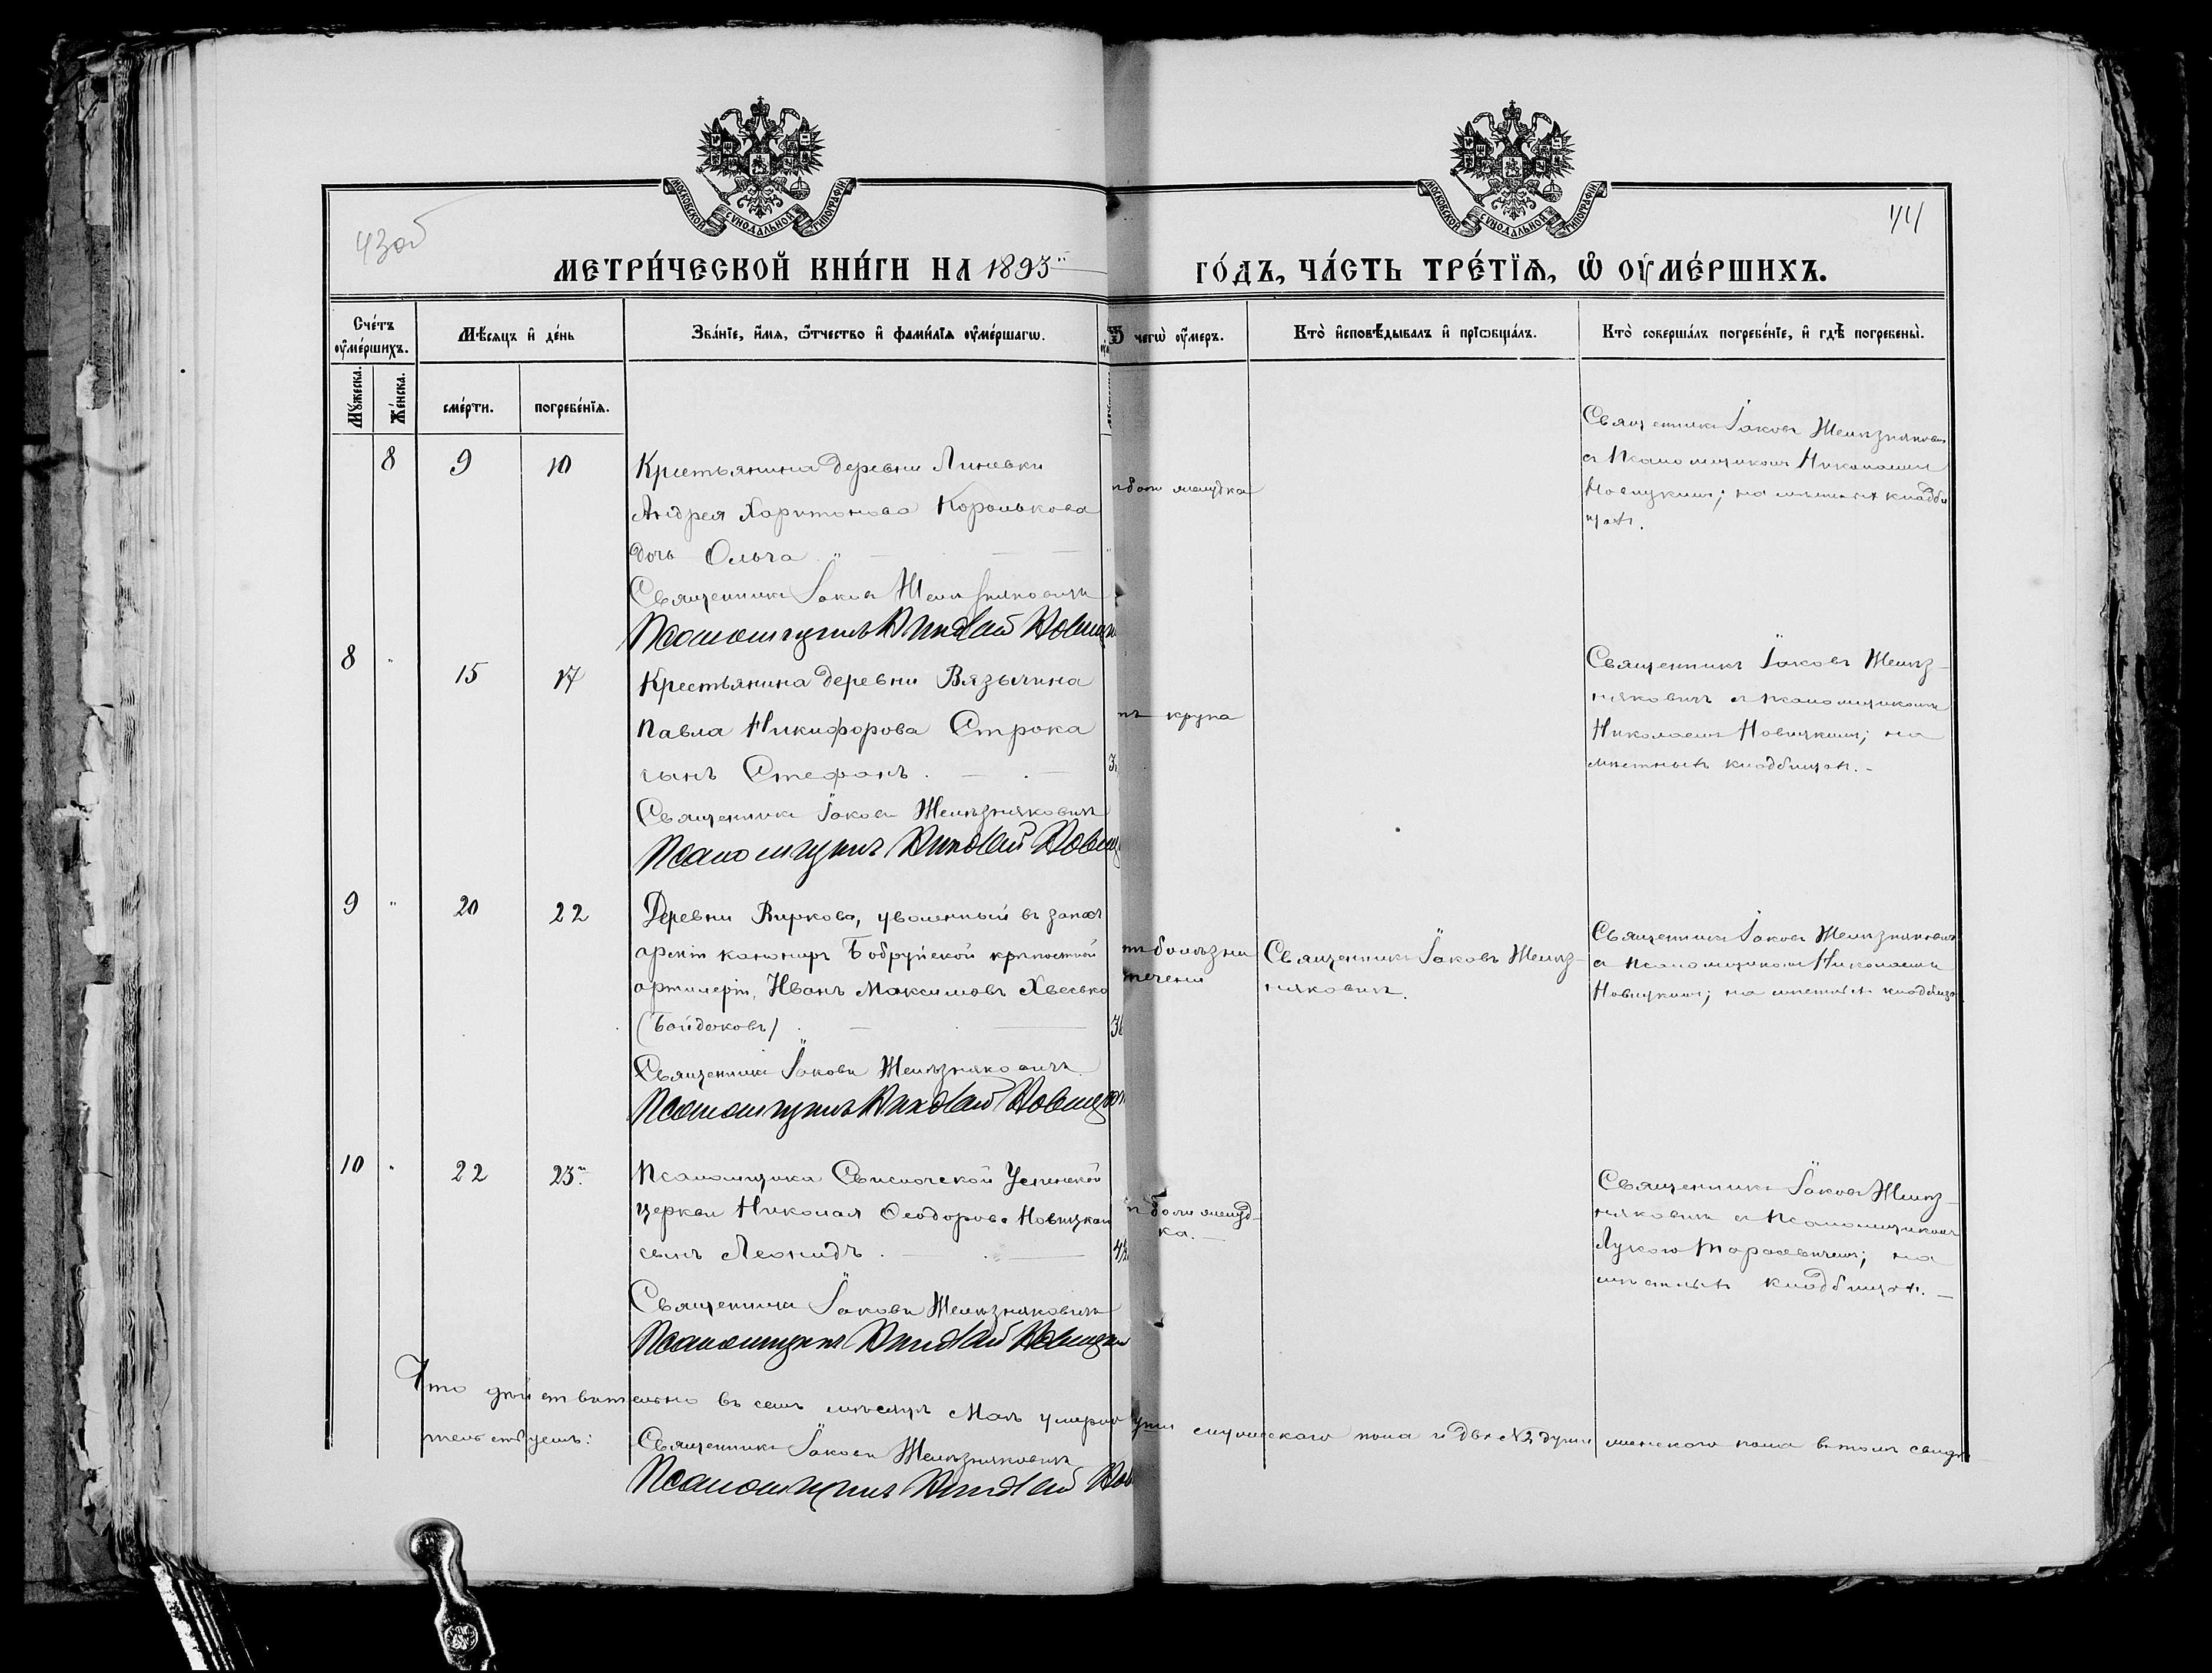 МОСКОВСКОЙ СѴНОДАЛЬНОЙ ТИПОГРАФІИ
МОСКОВСКОЙ СѴНОДАЛЬНОЙ ТИПОГРАФІИ
43об
44
МЕТРИ́ЧЕСКОЙ КНИ́ГИ НА 1893й
ГО́ДЪ, ЧА́СТЬ ТРЕ́ТІѦ, Ѿ ОУМЕ́РШИХЪ.
Сче́тъ оуме́ршихъ.
Мꙋжеска.
Же́нска.
Мѣсяцъ и де́нь
сме́рти.
погребе́нїѧ.
Зва́нїе, и́мѧ, ѻ́тчество и фами́лїѧ оуме́ршагѡ.
Ѿ чегѡ̀ оу́меръ.
Кто̀ исповѣ́дывалъ и прїѡбща́лъ.
Кто̀ соверша́лъ погребе́нїе, и гдѣ̀ погребены̀.
8 9 10
Крестьянина деревни Линевки
Андрея Харитонова Королькова
дочь Ольга
Священникъ Іаковъ Желѣзняковичъ
Псаломщикъ Николай Новицк
боли желудка
Священникъ Іаковъ Желѣзняковичъ
съ Псаломщикомъ Николаемъ
Новицкимъ; на мѣстномъ кладби
щѣ.
8 " 15 17
Крестьянина деревни Вязычина
Павла Никифорова Строка
сынъ Стефанъ.
Священникъ Іаковъ Желѣзняковичъ
Псаломщикъ Николай Новиц
крупа
Священникъ Іаковъ Желѣз-
няковичъ съ псаломщикомъ
Николаемъ Новицкимъ; на
мѣстномъ кладбищѣ.-
9 " 20 22
Деревни Виркова, уволенный въ запасъ
арміи канониръ Бобруйской крѣпостной
артилеріи, Иванъ Максимовъ Хвесько
(Байдаковъ)
Священникъ Іаковъ Желѣзняковичъ
Псаломщикъ Николай Новицк
болѣзни
печени
Священникъ Іаковъ Желѣз-
няковичъ.
Священникъ Іаковъ Желѣзняковичъ
съ псаломщикомъ Николаемъ
Новицкимъ; на мѣстномъ кладбищѣ
10 " 22 23й
Псаломщика Свислочской Успенской
церкви Николая Ѳеодорова Новицкаго
сынъ Леонидъ.
Священникъ Іаковъ Желѣзняковичъ
Псаломщикъ Николай Новицкій
боли желуд-
ка.-
Священникъ Іаковъ Желѣз-
няковичъ съ Псаломщикомъ
Лукою Тарасевичемъ; на
мѣстномъ кладбищѣ.-
Что дѣйствительно въ семъ мѣсяцѣ Маѣ умерло души мужескаго пола и двѣ №2 души женскаго пола въ томъ свидѣ
тельствуемъ: Священникъ Іаковъ Желѣзняковичъ
Псаломщикъ Николай Нов